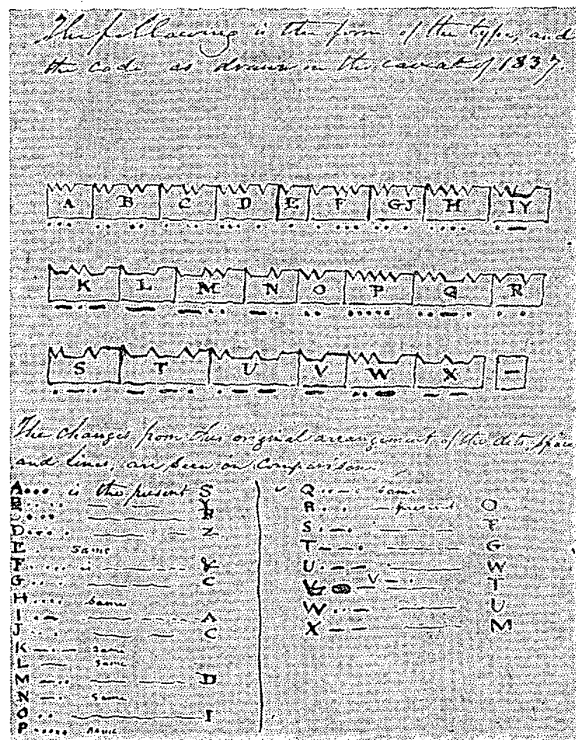 The following is the form of the type, and
the code as drawn in the caveat of 1837.
A B C D E F GJ H IY
K L M N O P Q R
S T U V W X –
The changes from this original arrangement of the dots, space
and lines, are seen on comparison.
A... is the present S
B
D Z
E same
F
G C
H.... same
I A
J C
K same
L — same
M D
N same
O .. I
P ..... same
Q same
R present O
S F
T G
U W
V T
W U
X M